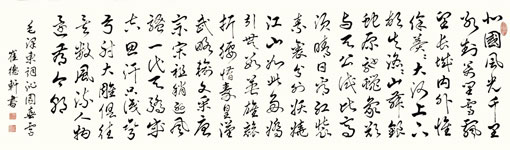 北國風光千里
冰封萬里雪飄
望長城內外惟
餘莽莽大河上下
頓失滔滔山舞銀
蛇原馳蠟象欲
與天公試比高
須晴日看紅裝
素裹分外妖嬈
江山如此多嬌
引無數英雄競
折腰惜秦皇漢
武略輸文采唐
宗宋祖稍遜風
騷一代天驕成
吉思汗只識彎
弓射大雕俱往
矣數風流人物
還看今朝
毛澤東詞沁園春雪
崔德軒書